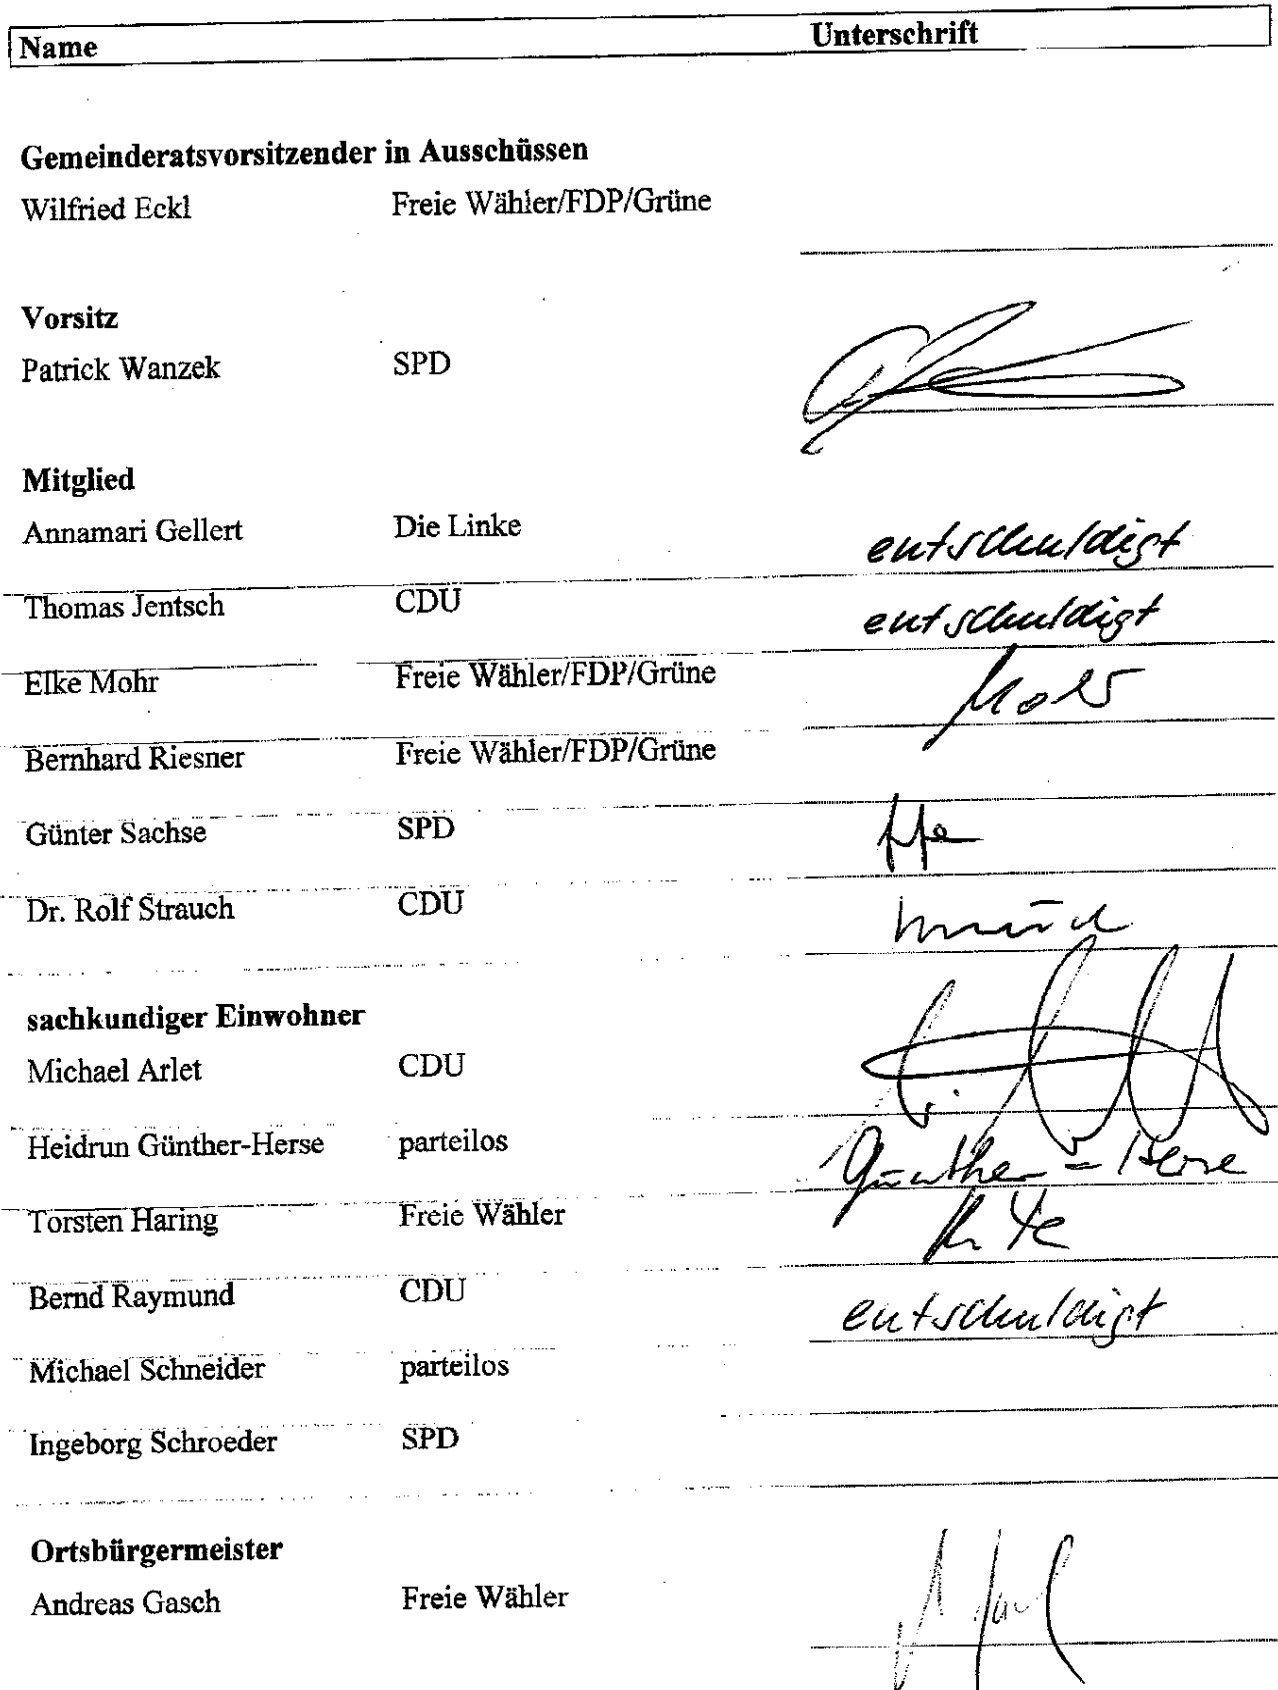 Name Unterschrift
Gemeinderatsvorsitzender in Ausschüssen
Wilfried Eckl Freie Wähler/FDP/Grüne
Vorsitz
Patrick Wanzek SPD
Mitglied
Annamari Gellert Die Linke entschuldigt
Thomas Jentsch CDU entschuldigt
Elke Mohr Freie Wähler/FDP/Grüne Mohr
Bernhard Riesner Freie Wähler/FDP/Grüne
Günter Sachse SPD
Dr. Rolf Strauch CDU
sachkundiger Einwohner
Michael Arlet CDU
Heidrun Günther-Herse parteilos Günther-Herse
Torsten Haring Freie Wähler
Bernd Raymund CDU entschuldigt
Michael Schneider parteilos
Ingeborg Schroeder SPD
Ortsbürgermeister
Andreas Gasch Freie Wähler